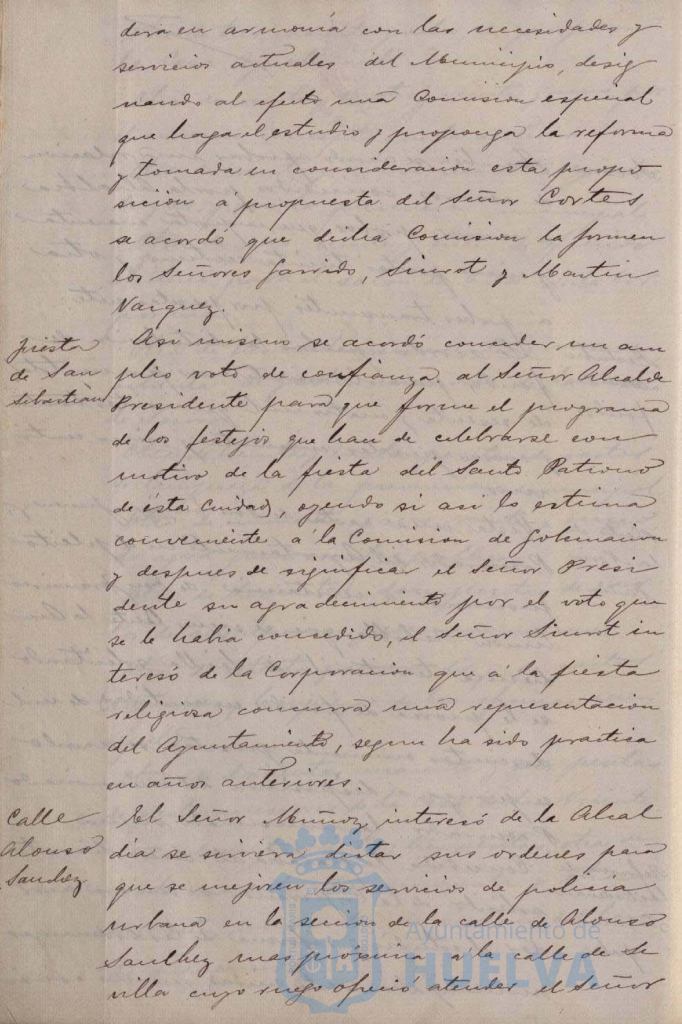 dera en armonía con las necesidades y
servicios actuales del Municipio, desig
nando al efecto una Comision especial
que haga el estudio y proponga la reforma
y tomada en consideracion esta propo
sicion á propuesta del Señor Cortes
se acordó que dicha Comision la formen
los Señores Garrido, Siurot y Martin
Vazquez.
fiesta
de San
Sebastián
Asi mismo se acordó conceder un am
plio voto de confianza al Señor Alcalde
Presidente para que forme el programa
de los festejos que han de celebrarse con
motivo de la fiesta del Santo Patrono
de ésta Ciudad, oyendo si asi lo estima
conveniente á la Comision de Gobernacion
y despues de significar el Señor Presi
dente su agradecimiento por el voto que
se le habia concedido, el Señor Siurot in
teresó de la Corporacion que á la fiesta
religiosa concurra una representacion
del Ayuntamiento, segun ha sido practica
en años anteriores.
Calle
Alonso
Sanchez
El Señor Muñoz interesó de la Alcal
dia se sirviera dictar sus ordenes para
que se mejoren los servicios de policia
urbana en la seccion de la calle de Alonso
Sanchez mas próxima á la calle de Se
villa cuyo ruego ofreció atender el Señor
Ayuntamiento de
HUELVA